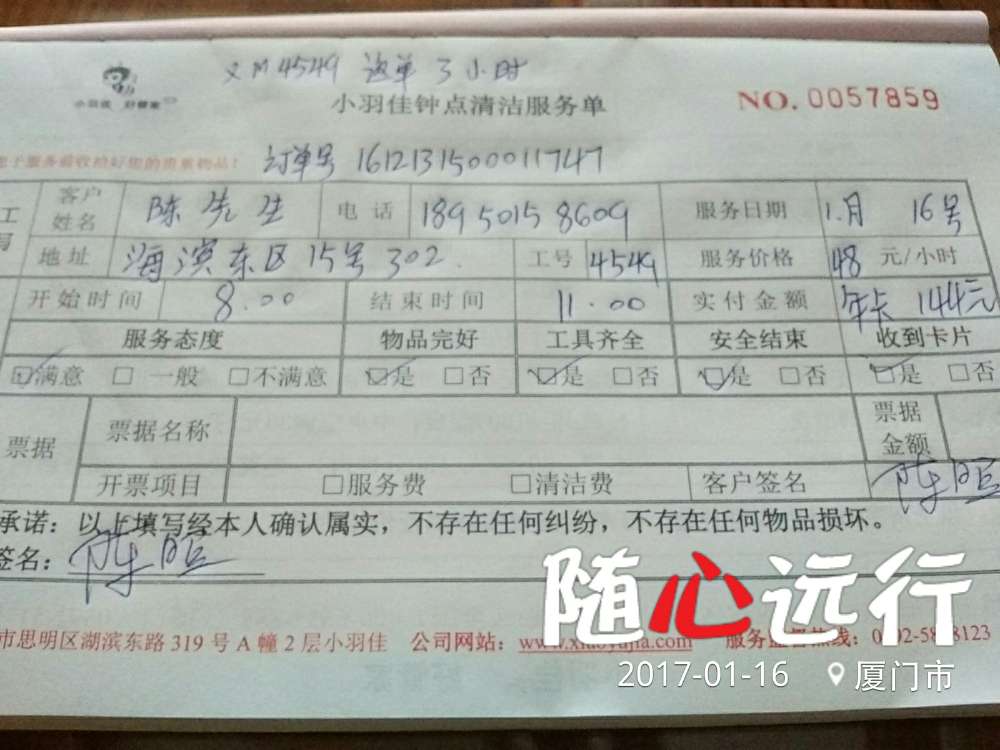 XM4549 返单 3小时
小羽佳 好管家
小羽佳钟点清洁服务单
NO. 0057859
订单号 16121315000011747
客户姓名 陈先生 电话 18950158609 服务日期 1.月 16号
地址 海滨东区15号302. 工号 4549 服务价格 48 元/小时
开始时间 8.00 结束时间 11.00 实付金额 年卡 144元
服务态度 物品完好 工具齐全 安全结束 收到卡片
☑满意 □一般 □不满意 ☑是 □否 ☑是 □否 ☑是 □否 ☑是 □否
票据 票据名称 票据金额
开票项目 □服务费 □清洁费 客户签名
承诺：以上填写经本人确认属实，不存在任何纠纷，不存在任何物品损坏。
签名：
市思明区湖滨东路319号A幢2层小羽佳 公司网站：www.xiaoyujia.com 服务监督热线：
随心远行
2017-01-16 厦门市